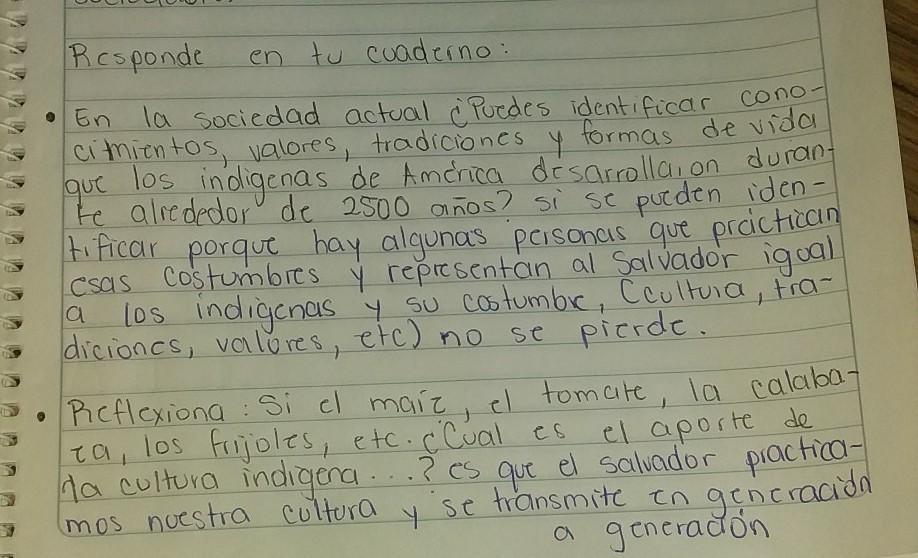 Responde en tu cuaderno:
• En la sociedad actual ¿Puedes identificar cono-
cimientos, valores, tradiciones y formas de vida
que los indigenas de América desarrollaron duran-
te alrededor de 2500 años? si se pueden iden-
tificar porque hay algunas personas que practican
esas costumbres y representan al Salvador igual
a los indigenas y su costumbre, (cultura, tra-
diciones, valores, etc) no se pierde.
• Reflexiona: Si el maíz, el tomate, la calaba-
za, los frijoles, etc. ¿Cual es el aporte de
la cultura indigena...? es que el salvador practica-
mos nuestra cultura y se transmite en generación
a generación